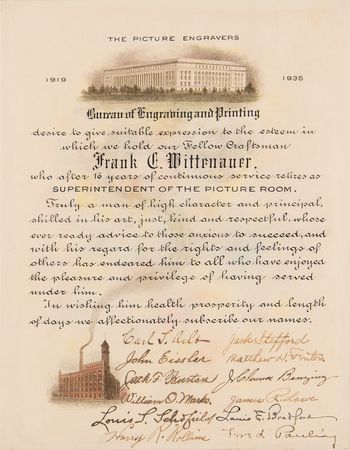 THE PICTURE ENGRAVERS
1919 1935
Bureau of Engraving and Printing
desire to give suitable expression to the esteem in
which we hold our Fellow Craftsman
Frank C. Wittenauer,
who after 16 years of continuous service retires as
SUPERINTENDENT OF THE PICTURE ROOM.
Truly a man of high character and principal,
skilled in his art, just, kind and respectful, whose
ever ready advice to those anxious to succeed, and
with his regard for the rights and feelings of
others has endeared him to all who have enjoyed
the pleasure and privilege of having served
under him.
In wishing him health prosperity and length
of days we affectionately subscribe our names.
Carl T. Arlt Jack Stafford
John Eissler Matthew D. Fenton
J. C. Benzing
William O. Marks James R. Lowe
Louis S. Schofield Louis F. Bradford
Harry R. Rollins Fred Pauling